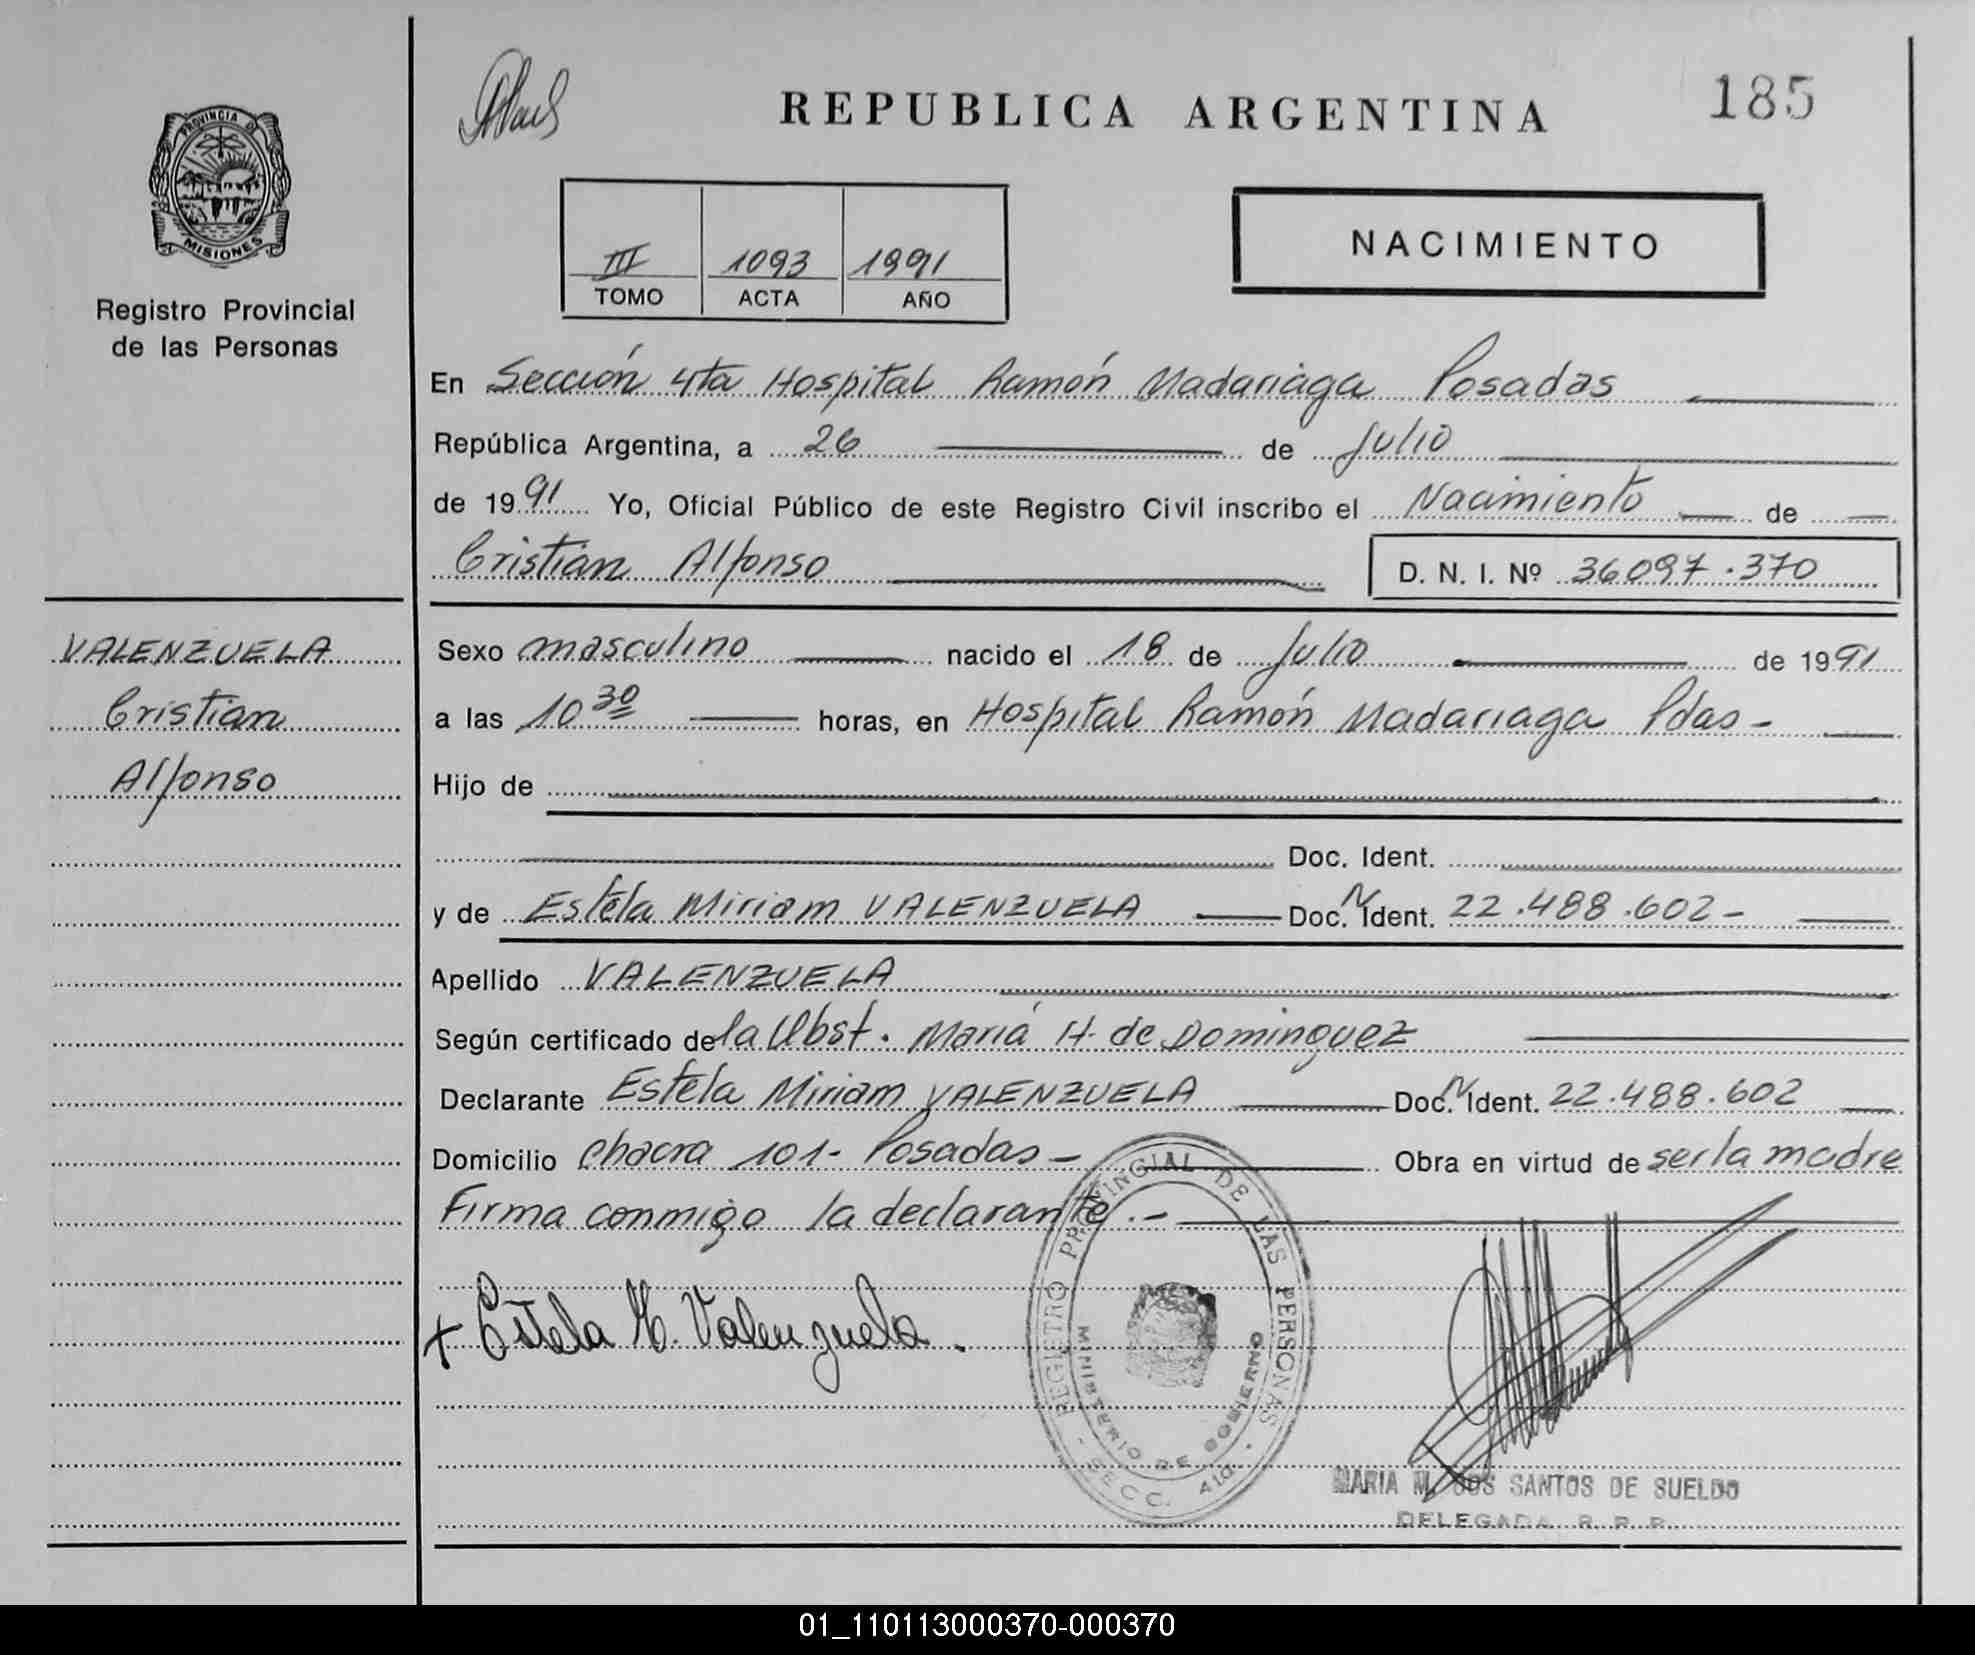 PROVINCIA DE
MISIONES
Registro Provincial
de las Personas
VALENZUELA
Cristian
Alfonso
REPUBLICA ARGENTINA
185
III 1093 1991
TOMO ACTA AÑO
NACIMIENTO
En Sección 4ta Hospital Ramón Madariaga Posadas
República Argentina, a 26 de Julio
de 1991 Yo, Oficial Público de este Registro Civil inscribo el Nacimiento de
Cristian Alfonso D. N. I. Nº 36097.370
Sexo masculino nacido el 18 de Julio de 1991
a las 10 30 horas, en Hospital Ramón Madariaga Pdas-
Hijo de
Doc. Ident.
y de Estela Miriam VALENZUELA Doc. N Ident. 22.488.602-
Apellido VALENZUELA
Según certificado de la Obst. María H. de Dominguez
Declarante Estela Miriam VALENZUELA Doc. N Ident. 22.488.602
Domicilio Chacra 101- Posadas- Obra en virtud de ser la madre
Firma conmigo la declarante.-
+ Estela M. Valenzuela.
REGISTRO PROVINCIAL DE LAS PERSONAS
MINISTERIO DE GOBIERNO
SECC. 4ta.
MARIA M. DOS SANTOS DE SUELDO
DELEGADA R. P. P.
01_110113000370-000370